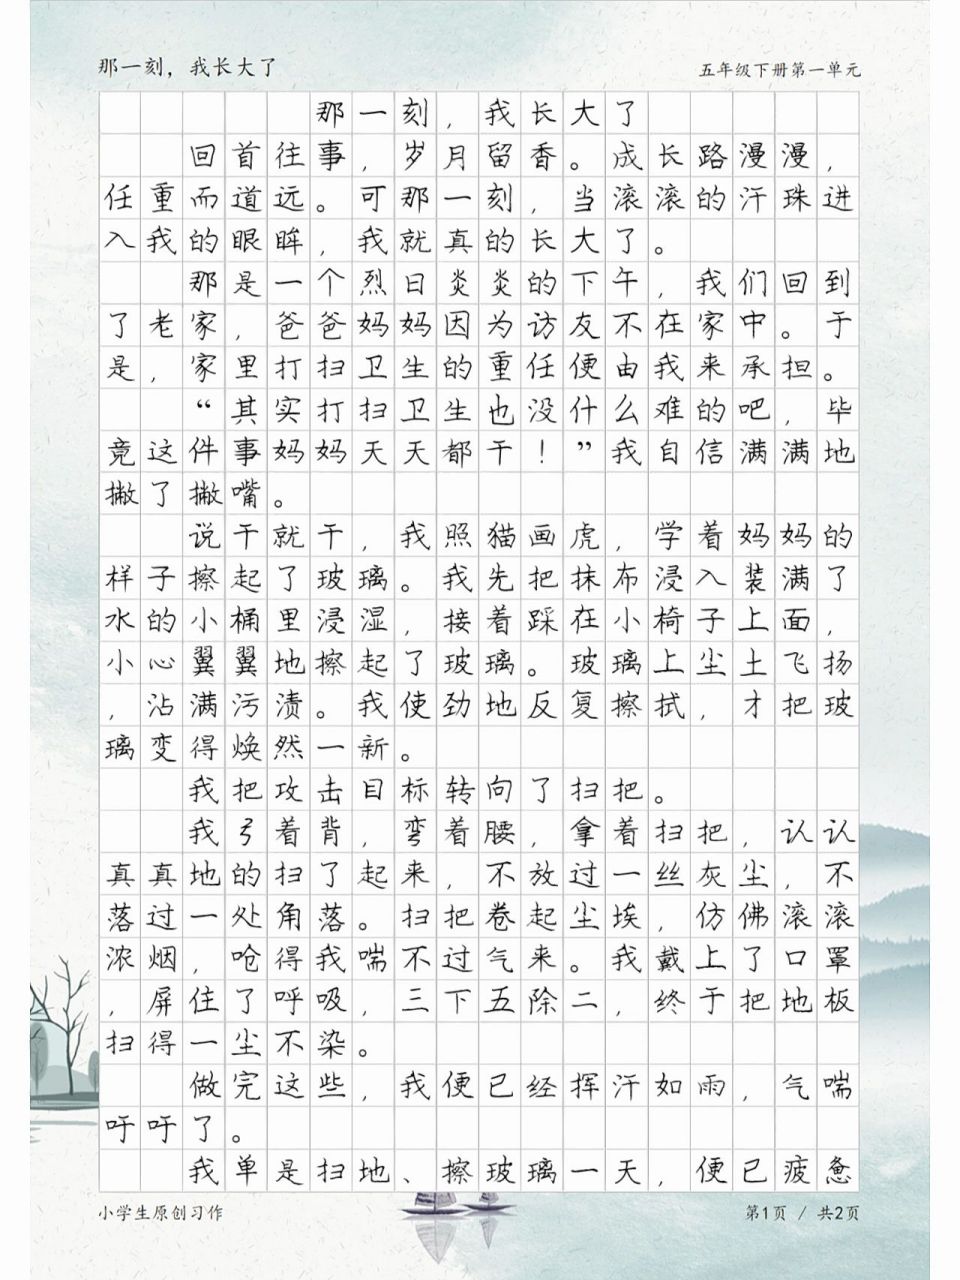 那一刻，我长大了
五年级下册第一单元
那一刻，我长大了
回首往事，岁月留香。成长路漫漫，
任重而道远。可那一刻，当滚滚的汗珠进
入我的眼眸，我就真的长大了。
那是一个烈日炎炎的下午，我们回到
了老家，爸爸妈妈因为访友不在家中。于
是，家里打扫卫生的重任便由我来承担。
“其实打扫卫生也没什么难的吧，毕
竟这件事妈妈天天都干！”我自信满满地
撇了撇嘴。
说干就干，我照猫画虎，学着妈妈的
样子擦起了玻璃。我先把抹布浸入装满了
水的小桶里浸湿，接着踩在小椅子上面，
小心翼翼地擦起了玻璃。玻璃上尘土飞扬
，沾满污渍。我使劲地反复擦拭，才把玻
璃变得焕然一新。
我把攻击目标转向了扫把。
我弓着背，弯着腰，拿着扫把，认认
真真地的扫了起来，不放过一丝灰尘，不
落过一处角落。扫把卷起尘埃，仿佛滚滚
浓烟，呛得我喘不过气来。我戴上了口罩
，屏住了呼吸，三下五除二，终于把地板
扫得一尘不染。
做完这些，我便已经挥汗如雨，气喘
吁吁了。
我单是扫地、擦玻璃一天，便已疲惫
小学生原创习作
第1页 / 共2页